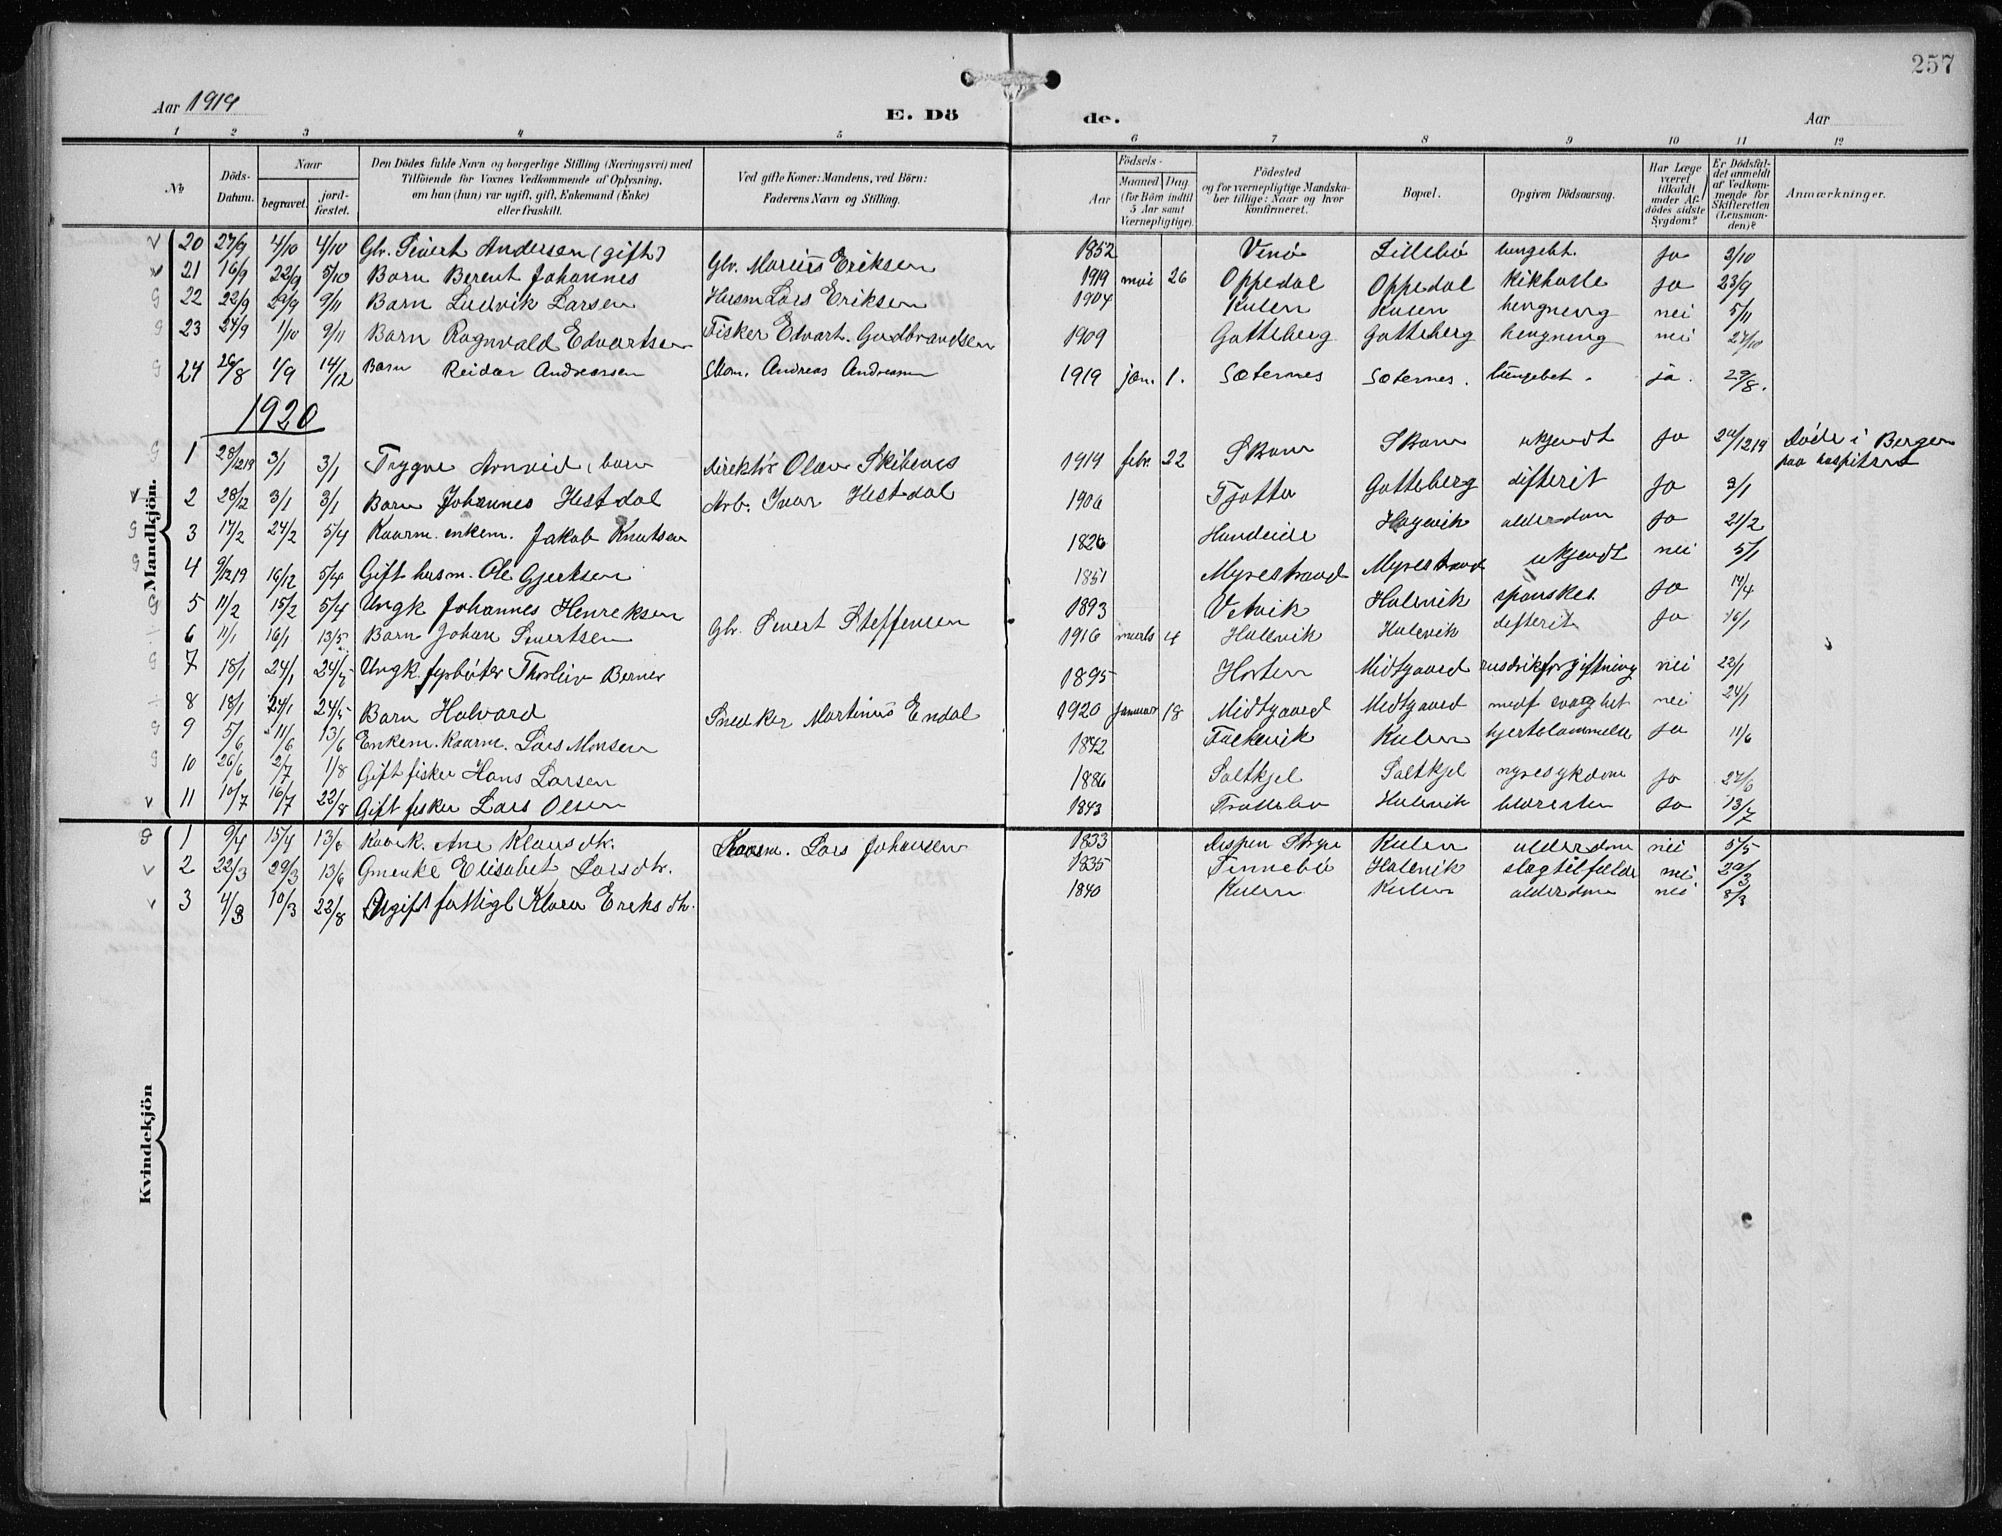 257
Aar 1919
E. Dö
de.
Aar
1 2 3 4 5 6 7 8 9 10 11 12
No
Döds-Datum.
Naar
begravet.
jord-fæstet.
Den Dödes fulde Navn og borgerlige Stilling (Næringsvei) med
Tilföiende for Voxnes Vedkommende af Oplysning,
om han (hun) var ugift, gift, Enkemand (Enke)
eller fraskilt.
Ved gifte Koner: Mandens, ved Börn:
Faderens Navn og Stilling.
Födsels-
Aar
Maaned
Dag
(for Börn indtil
5 Aar samt
Værnepligtige).
Födested
og for værnepligtige Mandska-
ber tillige: Naar og hvor
konfirmeret.
Bopæl.
Opgiven Dödsaarsag.
Har Læge
været
tilkaldt
under Af-
dödes sidste
Sygdom?
Er Dödsfal-
det anmeldt
af Vedkom-
mende for
Skifteretten
(Lensman-
den)?
Anmærkninger.
Mandkjön.
20 27/9 4/10 4/10 Gbr. Sivert Andersen (gift) 1852 Vinö Lillebö lungebet. ja 3/10
21 16/9 22/9 5/10 Barn Berent Johannes Gbr. Marius Eriksen 1919 mai 26 Oppedal Oppedal kikhoste ja 23/9
22 22/9 29/9 9/11 Barn Ludvik Larsen Husm Lars Eriksen 1904 Kulen Kulen hengning nei 5/11
23 24/9 1/10 9/11 Barn Ragnvald Edvartsen Fisker Edvart Gudbrandsen 1909 Gotteberg Gotteberg hengning nei 27/10
24 26/8 1/9 14/12 Barn Reidar Andreassen Andreas Andreasen 1919 jan. 1. Sæternes Sæternes. lungebet. ja. 29/8.
1920
1 28/1219 3/1 3/1 Trygve Arnvid, barn direktör Olav 1919 febr 22 Skoar ukjendt ja 1219 Döde i Bergen
paa hospitalet
2 28/12 3/1 3/1 Barn Johannes Hestdal Arb. Ivar Hestdal 1906 Tjotta Gotteberg difterit ja 3/1
3 17/2 24/2 5/4 Kaarm. enkem. Jakob Knutsen 1826 Hundeiде alderdom ja 21/2
4 9/1219 16/12 5/4 Gift husm. Ole Gjertsen 1851 Myrestrand Myrestrand ukjendt nei 5/1
5 11/2 15/2 5/4 Ungk Johannes Henriksen 1893 Vetvik Halsvik spanskes. ja 14/4
6 11/1 16/1 13/5 Barn Johan Sivertsen Gbr. Sivert Steffensen 1916 marts 4 Halsvik Halsvik difterit ja 16/1
7 18/1 24/1 Ungk. fyrböter Thorleiv Berner 1895 Horten Midtgaard rusdrikforgiftning nei 22/1
8 18/1 24/1 Barn Halvard Snedker Martinus Endal 1920 januar 18 Midtgaard Midtgaard medf svaghet nei 24/1
9 5/6 11/6 13/6 Enkem. Kaarm. Lars Monsen 1842 Falkevik Kulen hjertelammelse ja 11/6
10 26/6 2/7 1/8 Gift fisker Hans Larsen 1886 Saltkjel Saltkjel nyresykdom ja 27/6
11 10/7 16/7 22/8 Gift fisker Lars Olsen 1843 Trollebö Halsvik ja 13/7
Kvindekjön
1 9/4 15/4 13/6 Kaark. Ane Klausdtr. Kaarm. Lars Johansen 1833 Kulen alderdom nei 5/5
2 22/3 29/3 13/6 Elisabet Larsdtr. 1835 Tennebö Halsvik slagtilfælde nei
3 4/3 10/3 22/8 Ugift fattigl Klara Eriksdtr. 1840 Kulen Kulen alderdom nei 8/3